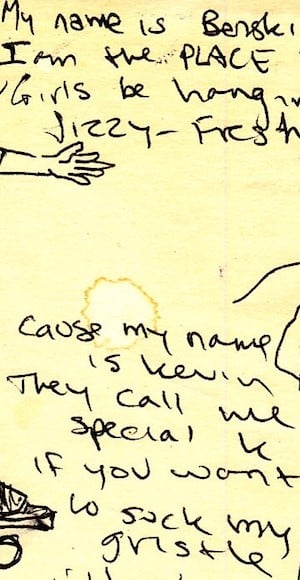 My name is Benski
I am the PLACE
Girls be hangin
Jizzy-Fresh
Cause my name
is kevin
They call me
special k
if you want
to suck my
gristle